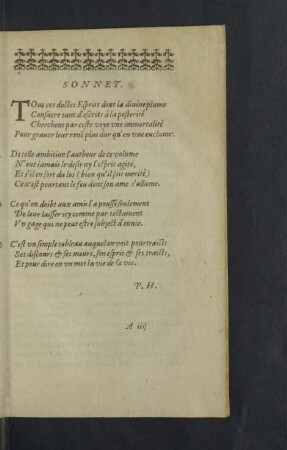 SONNET.
TOus ces doctes Esprits dont la diuine plume
Consacre tant d'escrits à la posterité
Cherchent par ceste voye vne immortalité
Pour grauer leur renõ plus dur qu'en vne enclume.
De telle ambition l'autheur de ce volume
N'eut iamais le desir ny l'esprit agité,
Et s'il en sort du los (bien qu'il soit merité)
Ce n'est pourtant le feu dont son ame s'allume.
Ce qu'en doibt aux amis l'a poussé seulement
De leur laisser icy comme par testament
Vn gage qui ne peut estre subject d'enuie.
C'est vn simple tableau auquel on voit pourtraicts
Ses discours & ses mœurs, son esprit & ses traicts,
Et pour dire en vn mot la vie de sa vie.
P. H.
A iiij